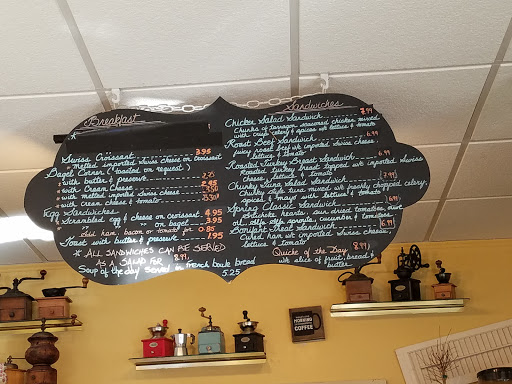 Breakfast
Swiss Croissant 3.95
Melted imported Swiss cheese on croissant
Bagel Corner (toasted on request)
with butter & preserve 2.75
with Cream Cheese
with melted imported Swiss cheese
with cream cheese & tomato
Egg Sandwiches
Scrambled egg & cheese on croissant 4.95
on bagel 3.95
Add ham, bacon or tomato for 0.85
Toast with butter & preserve 1.95
* ALL SANDWICHES CAN BE SERVED
AS A SALAD FOR 8.99
Soup of the day served in french boule bread 5.25
Sandwiches
Chicken Salad Sandwich 7.99
Chunks of tarragon seasoned chicken mixed
with crisp celery & spices w. lettuce & tomato
Roast Beef Sandwich 6.99
juicy roast beef w. imported Swiss cheese,
lettuce & tomato
Roasted Turkey Breast Sandwich 6.99
Roasted turkey breast topped w. imported Swiss
cheese, lettuce & tomato
Chunky Tuna Salad Sandwich 7.99
Chunky tuna mixed w. freshly chopped celery,
spices & mayo with lettuce & tomato
Spring Classic Sandwich 6.99
Artichoke hearts, sun dried tomatoes,
sprouts, cucumber & tomatoes
Bonjant Treat Sandwich 6.99
Cured ham w. imported Swiss cheese,
lettuce & tomato
Quiche of the Day 8.99
w. slice of fruit, bread &
butter
MORNING
COFFEE